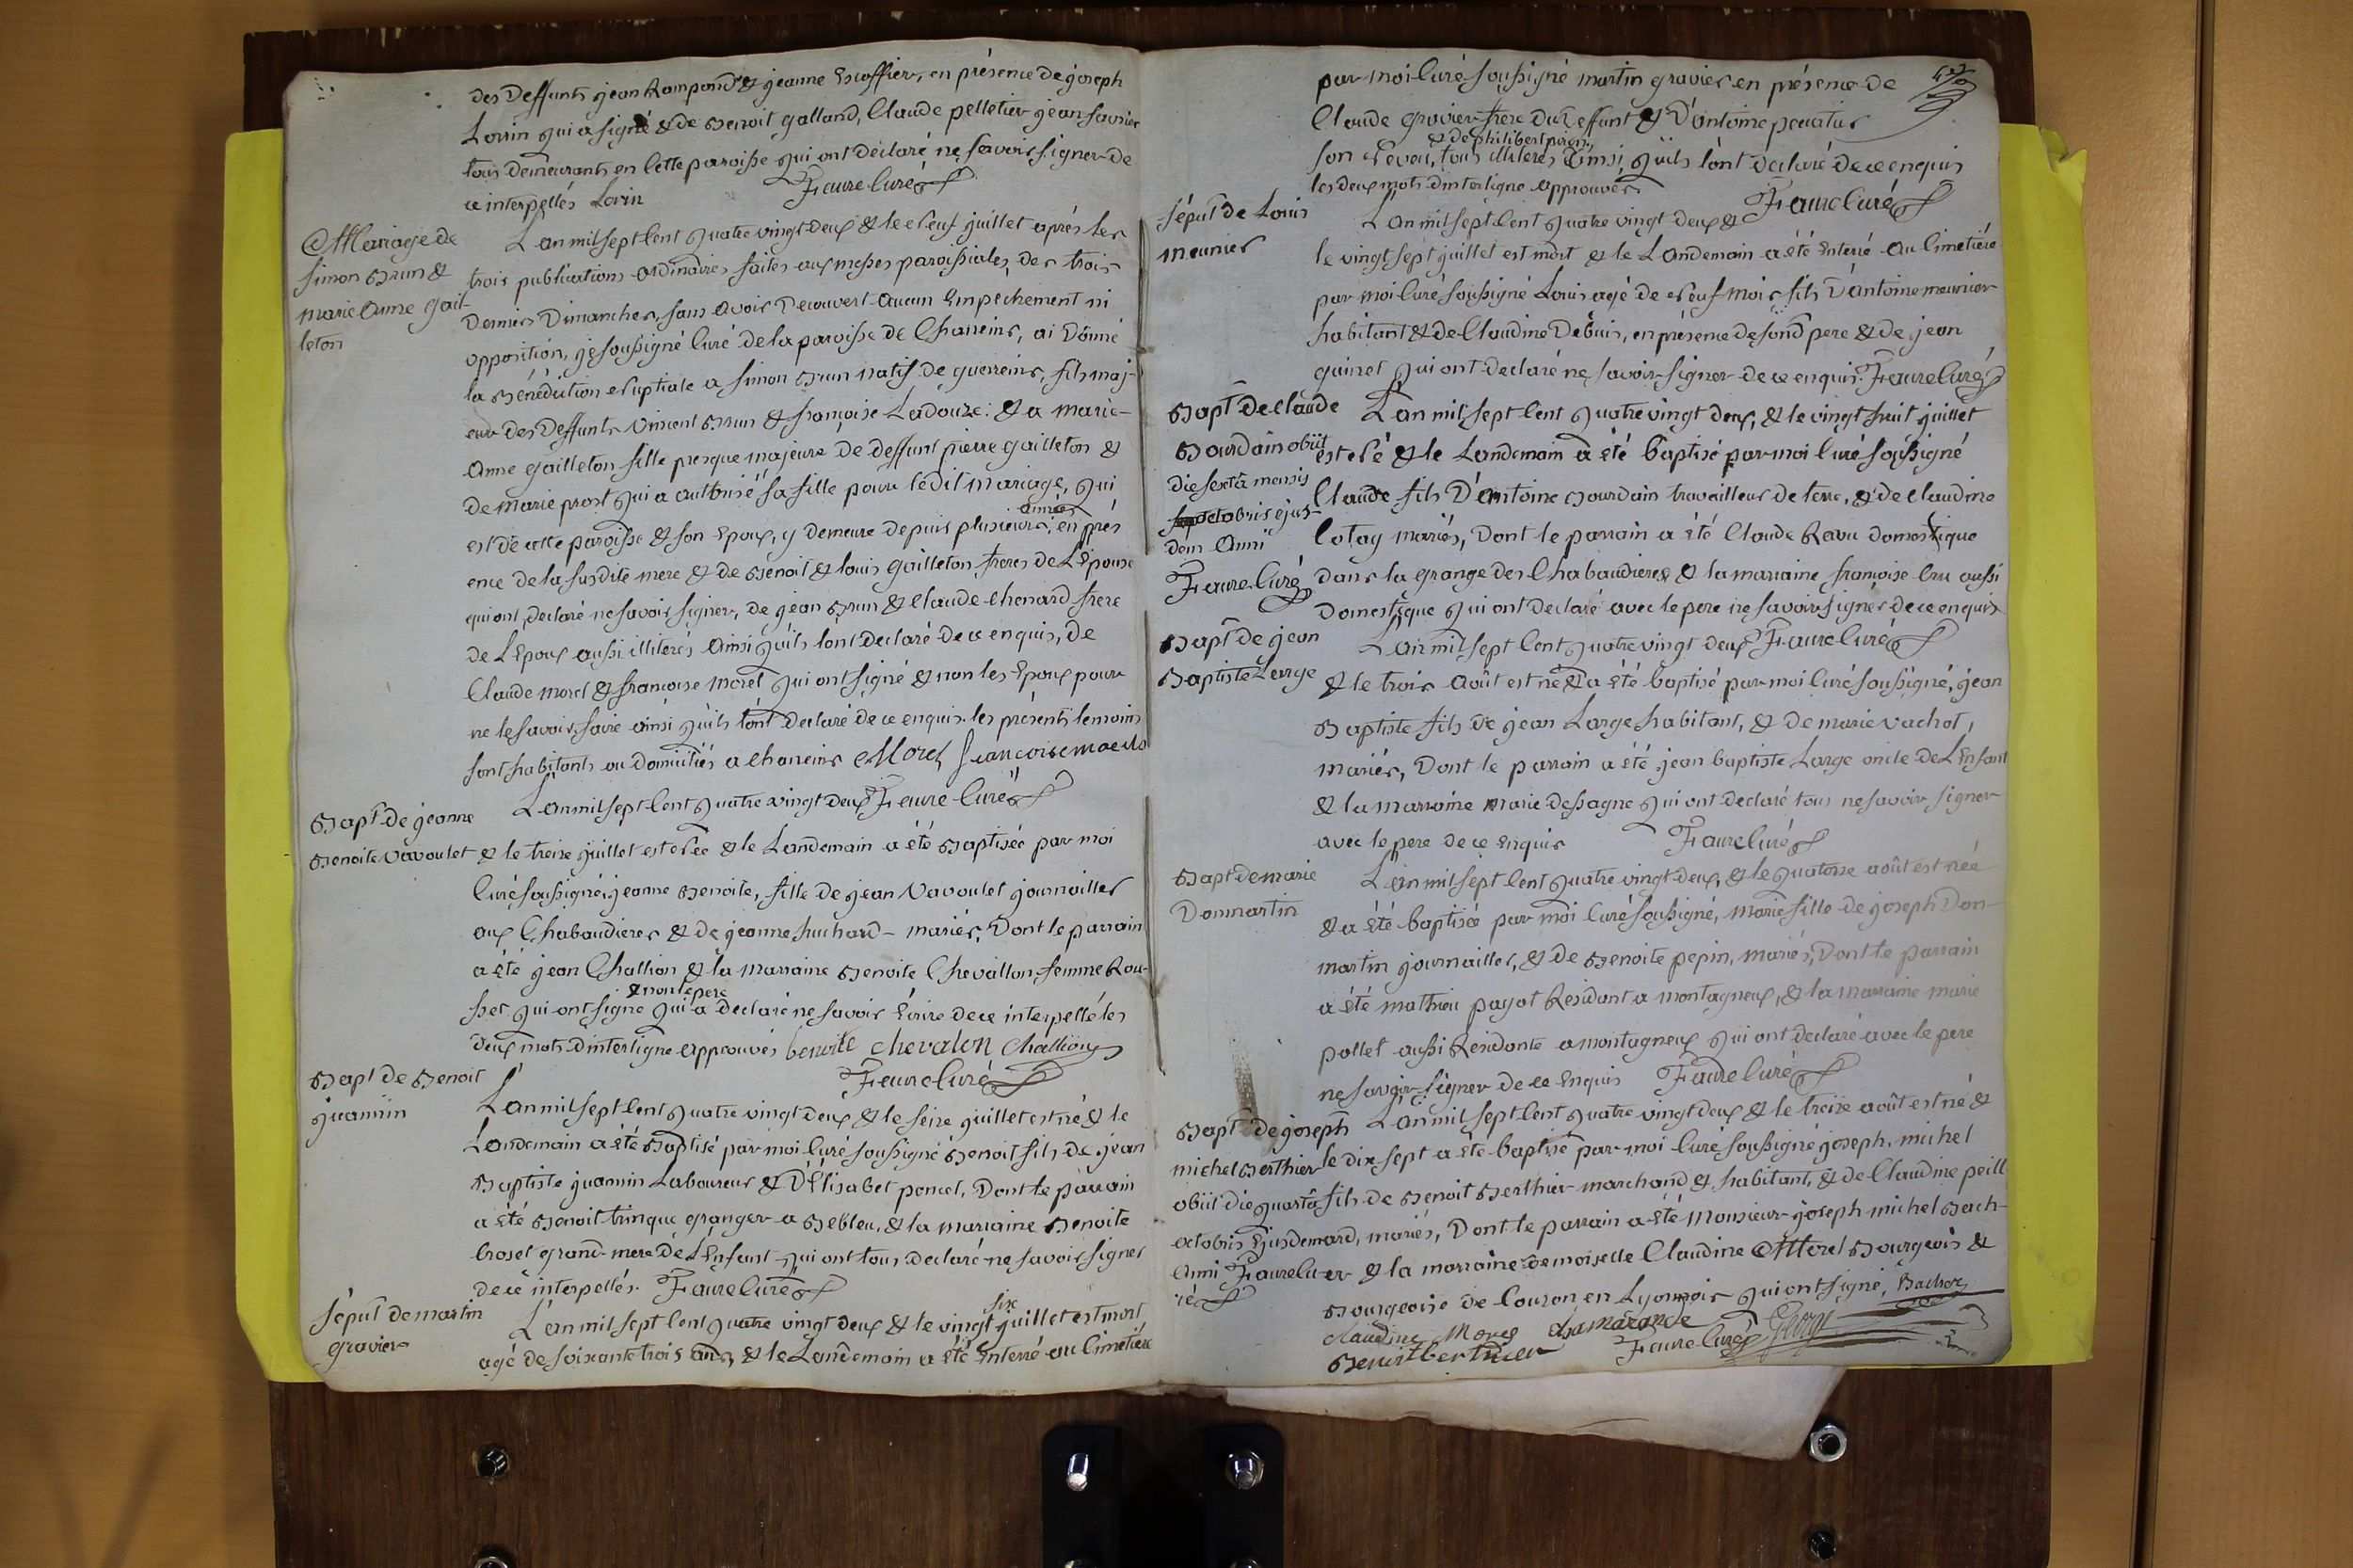 des deffunts jean Rampond & jeanne Escoffier, en présence de joseph
Lorin qui a signé & de Benoit galland, Claude pelletier jean
tous demeurants en cette paroisse qui ont déclaré ne savoir signer de
ce interpellés Lorin Faure Curé
Mariage de
simon Brun &
marie Anne gail-
leton
L'an mil sept cent quatre vingt deux & le neuf juillet après les
trois publications ordinaires faites aux messes paroissiales des trois
derniers Dimanches, sans avoir Decouvert aucun Empechement ni
opposition, je soussigné Curé de la paroisse de Chaneins, ai Donné
la Bénédiction Nuptiale a simon Brun natif de guerreins, fils maj-
eur des Deffunts Vincent Brun & françoise Ladouze: & a marie-
Anne gailleton fille presque majeure de deffunt pierre gailleton &
de marie prost qui a authorisé sa fille pour lédit mariage, qui
est de cette paroisse & son Epoux, y demeure depuis plusieurs années, en prés
ence de la susdite mere & de Benoit & louis gailleton freres de L'Epouse
qui ont déclaré ne savoir signer, de jean Brun & Claude Chenard frere
de L'Epoux aussi illiterés ainsi qu'ils l'ont declaré de ce enquis, de
Claude morel & francoise morel qui ont signé & non les Epoux pour
ne le savoir faire ainsi qu'ils l'ont declaré de ce enquis. les présents temoins
sont habitants ou domiciliés a Chaneins Morel francoise
Bapt de jeanne
Benoite Vavoulet
L'an mil sept cent quatre vingt deux Faure Curé
& le treize juillet est née & le Landemain a été Baptisée par moi
Curé soussigné, jeanne Benoite, fille de jean Vavoulet journailler
aux Chabaudieres & de jeanne huchard mariés, Dont le parrain
a été jean Challion & la marraine Benoite Chevallon femme Rou-
sset qui ont signé & non le pere qui a déclaré ne savoir Ecrire de ce interpellé les
deux mots d'interligne approuvés benoite chevalon Challion
Faure Curé
Bapt de Benoit
guamin
L'an mil sept cent quatre vingt deux & le seize juillet est né & le
Landemain a été Baptisé par moi Curé soussigné Benoit fils de jean
Baptiste guamin Laboureur & d'Elisabet poncet, Dont le parrain
a été Benoit trinque granger a Belleu, & la marraine Benoite
Croset grand-mere de L'Enfant qui ont tous declaré ne savoir signer
de ce interpellés. Faure Curé
sépul de martin
gravier
L'an mil sept cent quatre vingt deux & le vingt six juillet est mort
agé de soixante trois ans, & le Landemain a été Enterré au Cimetiere
par moi Curé soussigné martin gravier en présence de
Claude gravier frere du deffunt & d'antoine
son Neveu, & de philibert tous illiterés ainsi qu'ils l'ont declaré de ce enquis
les deux mots d'interligne approuvés Faure Curé
sépul de Louis
meunier
L'an mil sept cent quatre vingt deux &
le vingt sept juillet est mort & le Landemain a été Enterré au Cimetiére
par moi Curé soussigné Louis agé de Neuf mois fils d'antoine meunier
habitant & de Claudine Debuis, en présence de sond pere & de jean
guinet qui ont declaré ne savoir signer de ce enquis. Faure Curé
Bapt de claude
Bourdain obiit
die sexta mensis
octobris ejus-
dem anni
Faure Curé
L'an mil sept cent quatre vingt deux, & le vingt huit juillet
est Né & le Landemain a été baptisé par moi Curé soussigné
Claude fils D'antoine Bourdain travailleur de terre, & de Claudine
Cotay mariés, Dont le parrain a été Claude Ravu domestique
dans la grange des Chabaudieres & la marraine françoise Cru aussi
domestique qui ont declaré avec le pere ne savoir signer de ce enquis
Bapt de jean
Baptiste Large
L'an mil sept cent quatre vingt deux Faure Curé
& le trois Août est né & a été baptisé par moi Curé soussigné, jean
Baptiste fils de jean Large habitant, & de marie vachot,
mariés, Dont le parrain a été jean baptiste Large oncle de L'Enfant
& la marraine marie dessagne qui ont declaré tous ne savoir signer
avec le pere de ce Enquis Faure Curé
Bapt de marie
Donmartin
L'an mil sept cent quatre vingt deux, & le quatorze août est née
& a été baptisée par moi Curé soussigné, marie fille de joseph Don-
martin journailler, & de Benoite pepin, mariés, Dont le parrain
a été mathieu payot Residant a montagneux, & la marraine marie
pollet aussi Residante a montagneux qui ont declaré avec le pere
ne savoir signer de ce Enquis Faure Curé
Bapt de joseph
michel Berthier
obiit die quarta
octobris Ejusdem
anni Faure Cu-
ré
L'an mil sept cent quatre vingt deux & le treize août est né &
le dix sept a été baptisé par moi Curé soussigné joseph michel
fils de Benoit Berthier marchand & habitant, & de Claudine peill
ard, mariés, Dont le parrain a été Monsieur joseph michel Bach-
er & la marraine demoiselle Claudine Morel Bourgeois &
Bourgeoise de Couzon en Lyonnois qui ont signé, Bacher
claudine Morel Lamarande
Benoit berthier Faure Curé